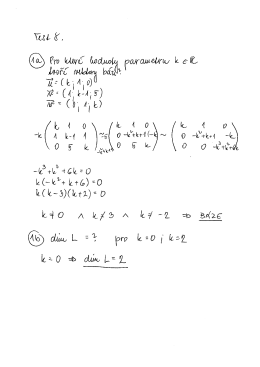 Test 8.
1a) Pro které hodnoty parametru k ∈ R
tvoří vektory bázi?
u = (k; 1; 0)
v = (1; k-1; 5)
w = (0; 1; k)
-k ( k 1 0 / 1 k-1 1 / 0 5 k ) ~ ( k 1 0 / 0 -k²+k+1 -k / 0 5 k ) ~ ( k 1 0 / 0 -k²+k+1 -k / 0 0 -k³+k²+6k )
-k³+k²+6k=0
k(-k²+k+6)=0
k(k-3)(k+2)=0
k≠0 ∧ k≠3 ∧ k≠-2 ⇒ BÁZE
1b) dim L = ? pro k=0; k=2
k=0 ⇒ dim L=2